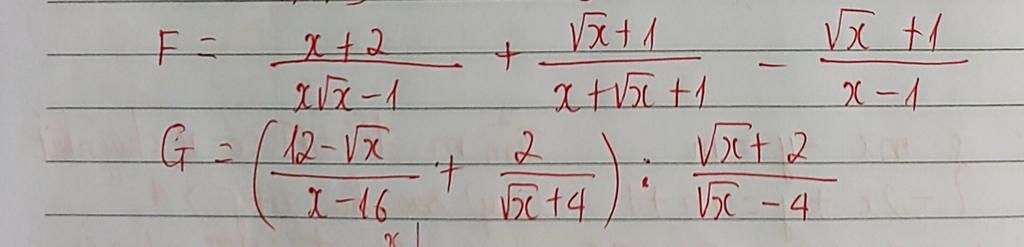 F = (x + 2)/(x√x − 1) + (√x + 1)/(x + √x + 1) − (√x + 1)/(x − 1)
G = ((12 − √x)/(x − 16) + 2/(√x + 4)) : (√x + 2)/(√x − 4)